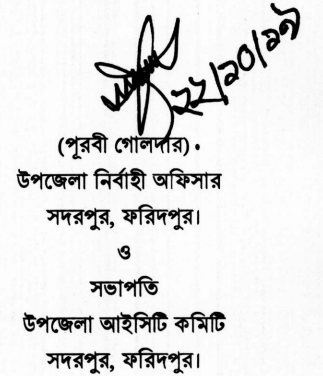 ২২/১০/১৯
(পূরবী গোলদার)।
উপজেলা নির্বাহী অফিসার
সদরপুর, ফরিদপুর।
ও
সভাপতি
উপজেলা আইসিটি কমিটি
সদরপুর, ফরিদপুর।